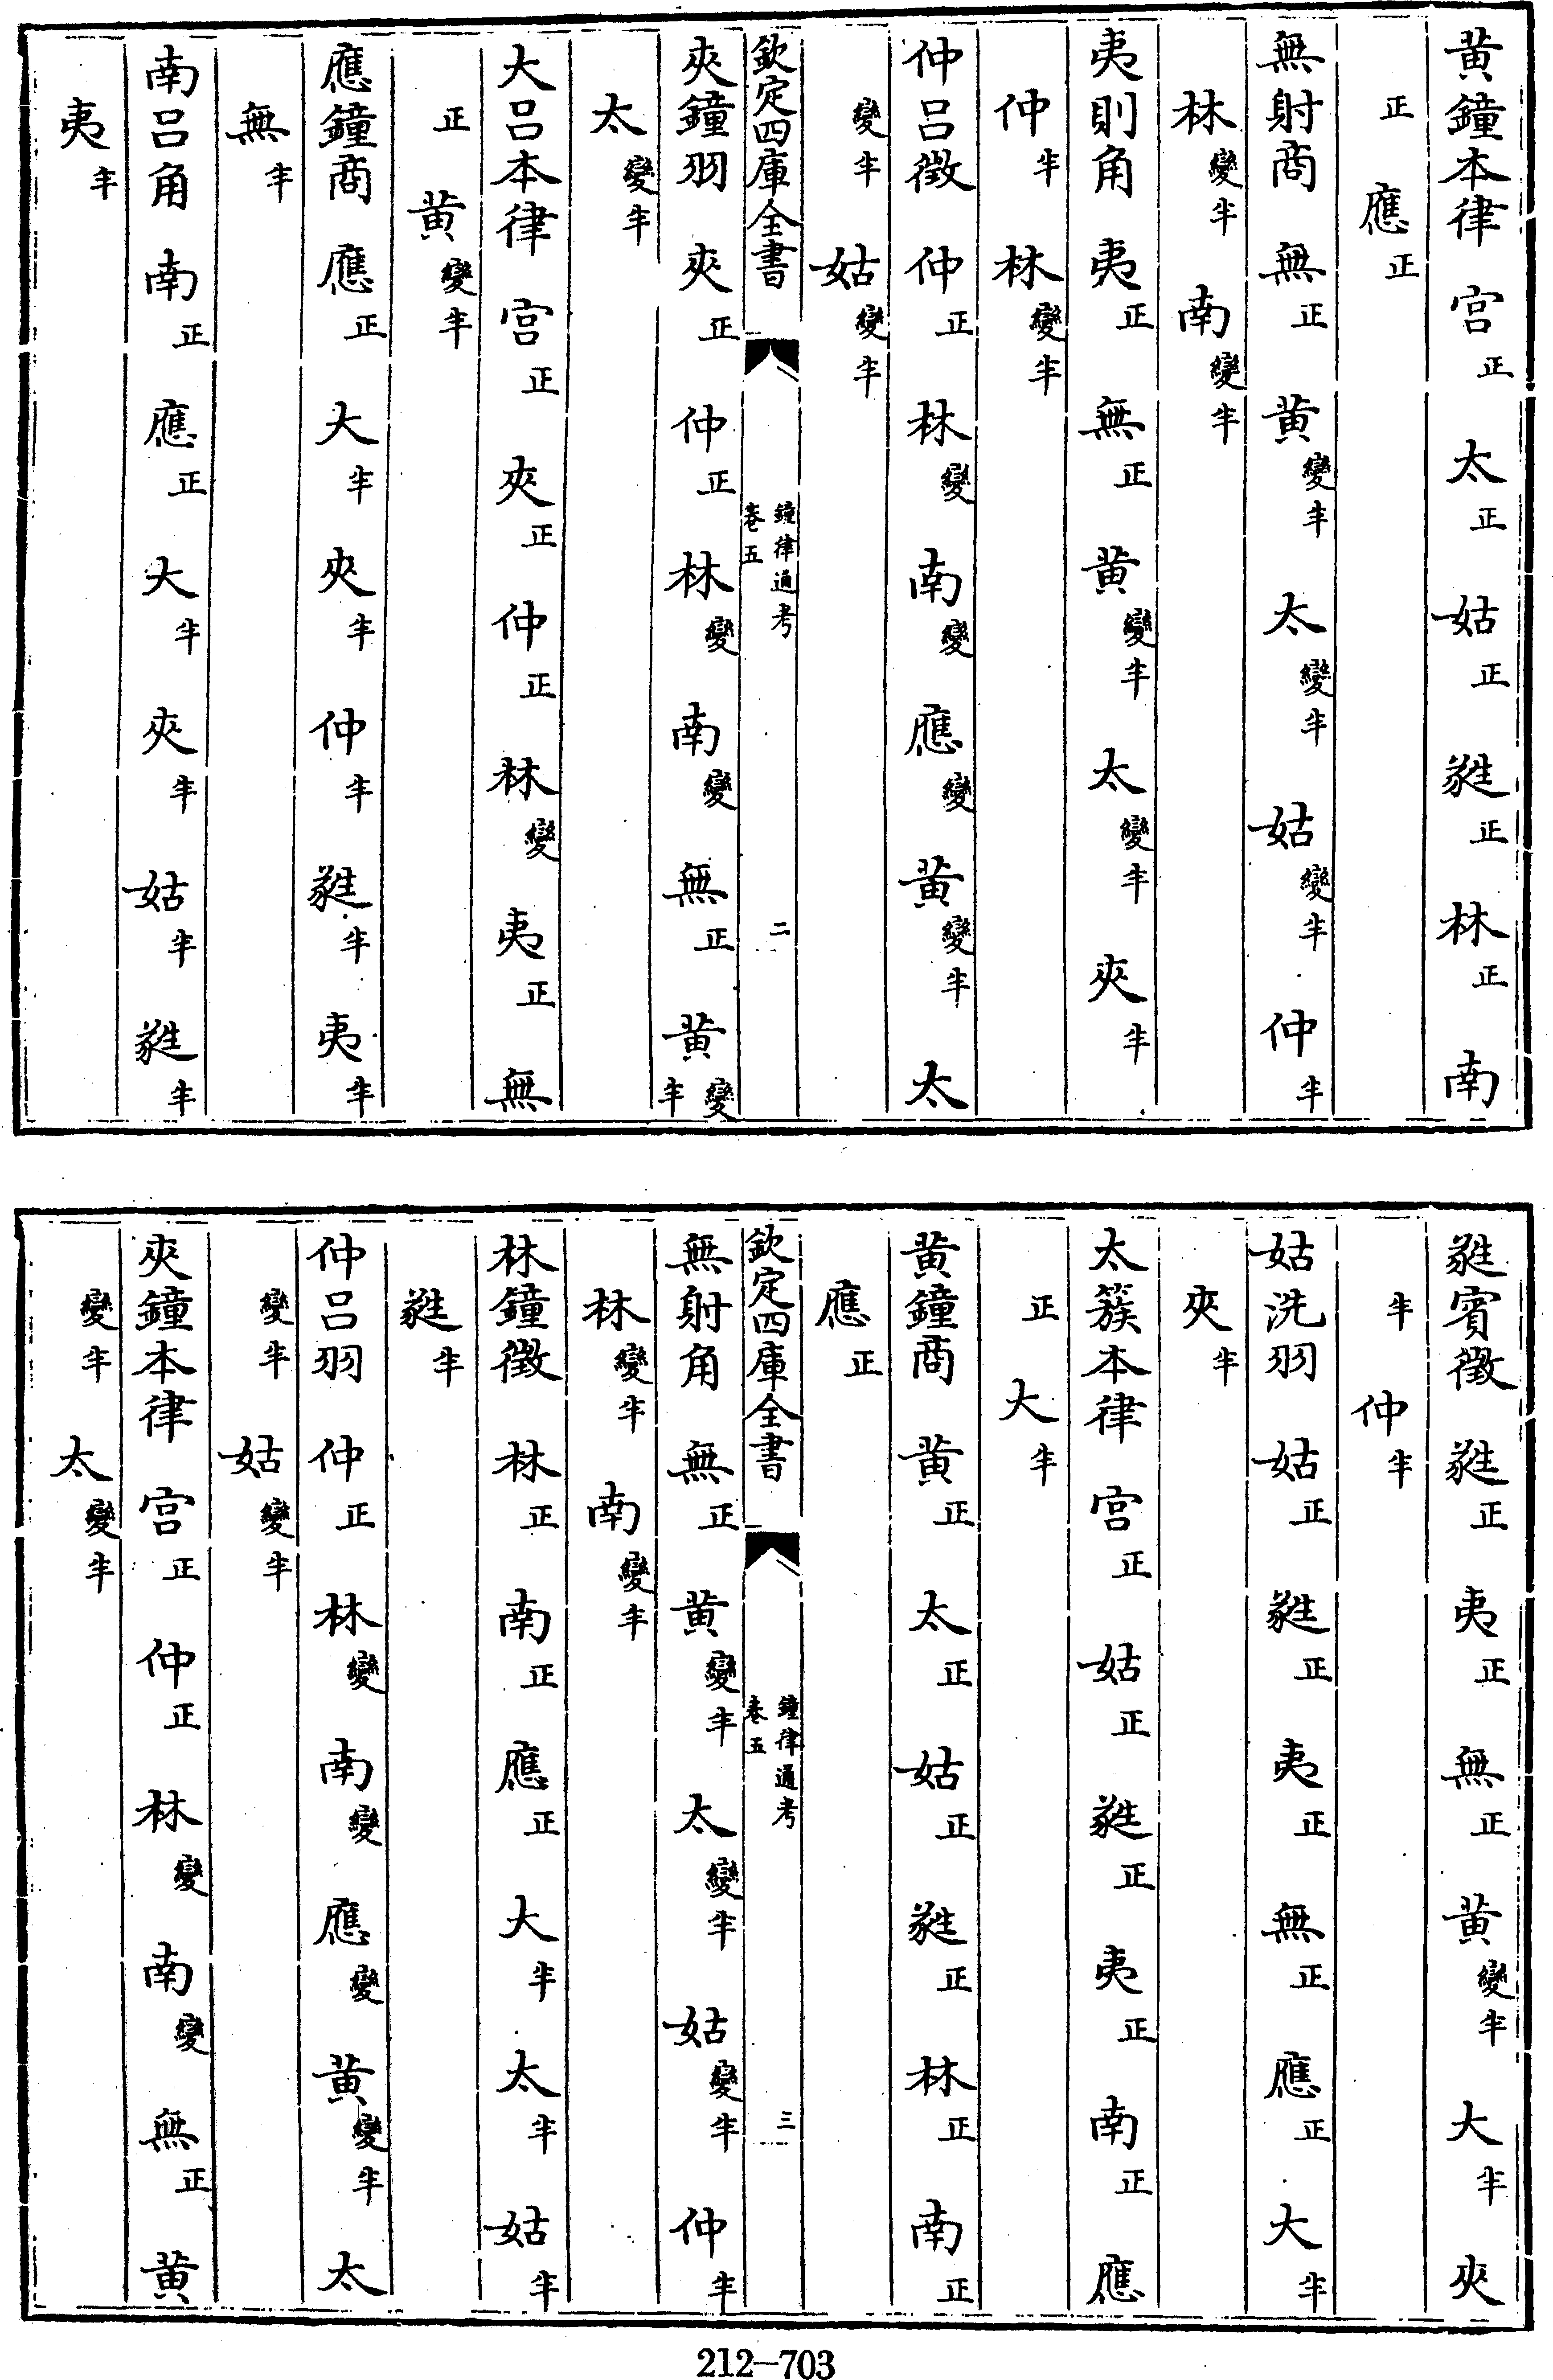 黄鐘本律 宫正 太正 姑正 蕤正 林正 南
正 應正
無射商 無正 黄變半 太變半 姑變半 仲半
林變半 南變半
夷則角 夷正 無正 黄變半 太變半 夾半
仲半 林變半
仲呂徵 仲正 林變 南變 應變 黄變半 太
變半 姑變半
欽定四庫全書
鐘律通考
卷五
二
夾鐘羽 夾正 仲正 林變 南變 無正 黄變半
太變半
大呂本律 宫正 夾正 仲正 林變 夷正 無
正 黄變半
應鐘商 應正 大半 夾半 仲半 蕤半 夷半
無半
南呂角 南正 應正 大半 夾半 姑半 蕤半
夷半
蕤賓徵 蕤正 夷正 無正 黄變半 大半 夾
半 仲半
姑洗羽 姑正 蕤正 夷正 無正 應正 大半
夾半
太簇本律 宫正 姑正 蕤正 夷正 南正 應
正 大半
黄鐘商 黄正 太正 姑正 蕤正 林正 南正
應正
欽定四庫全書
鐘律通考
卷五
三
無射角 無正 黄變半 太變半 姑變半 仲半
林變半 南變半
林鐘徵 林正 南正 應正 大半 太半 姑半
蕤半
仲呂羽 仲正 林變 南變 應變 黄變半 太
變半 姑變半
夾鐘本律 宫正 仲正 林變 南變 無正 黄
變半 太變半
212-703